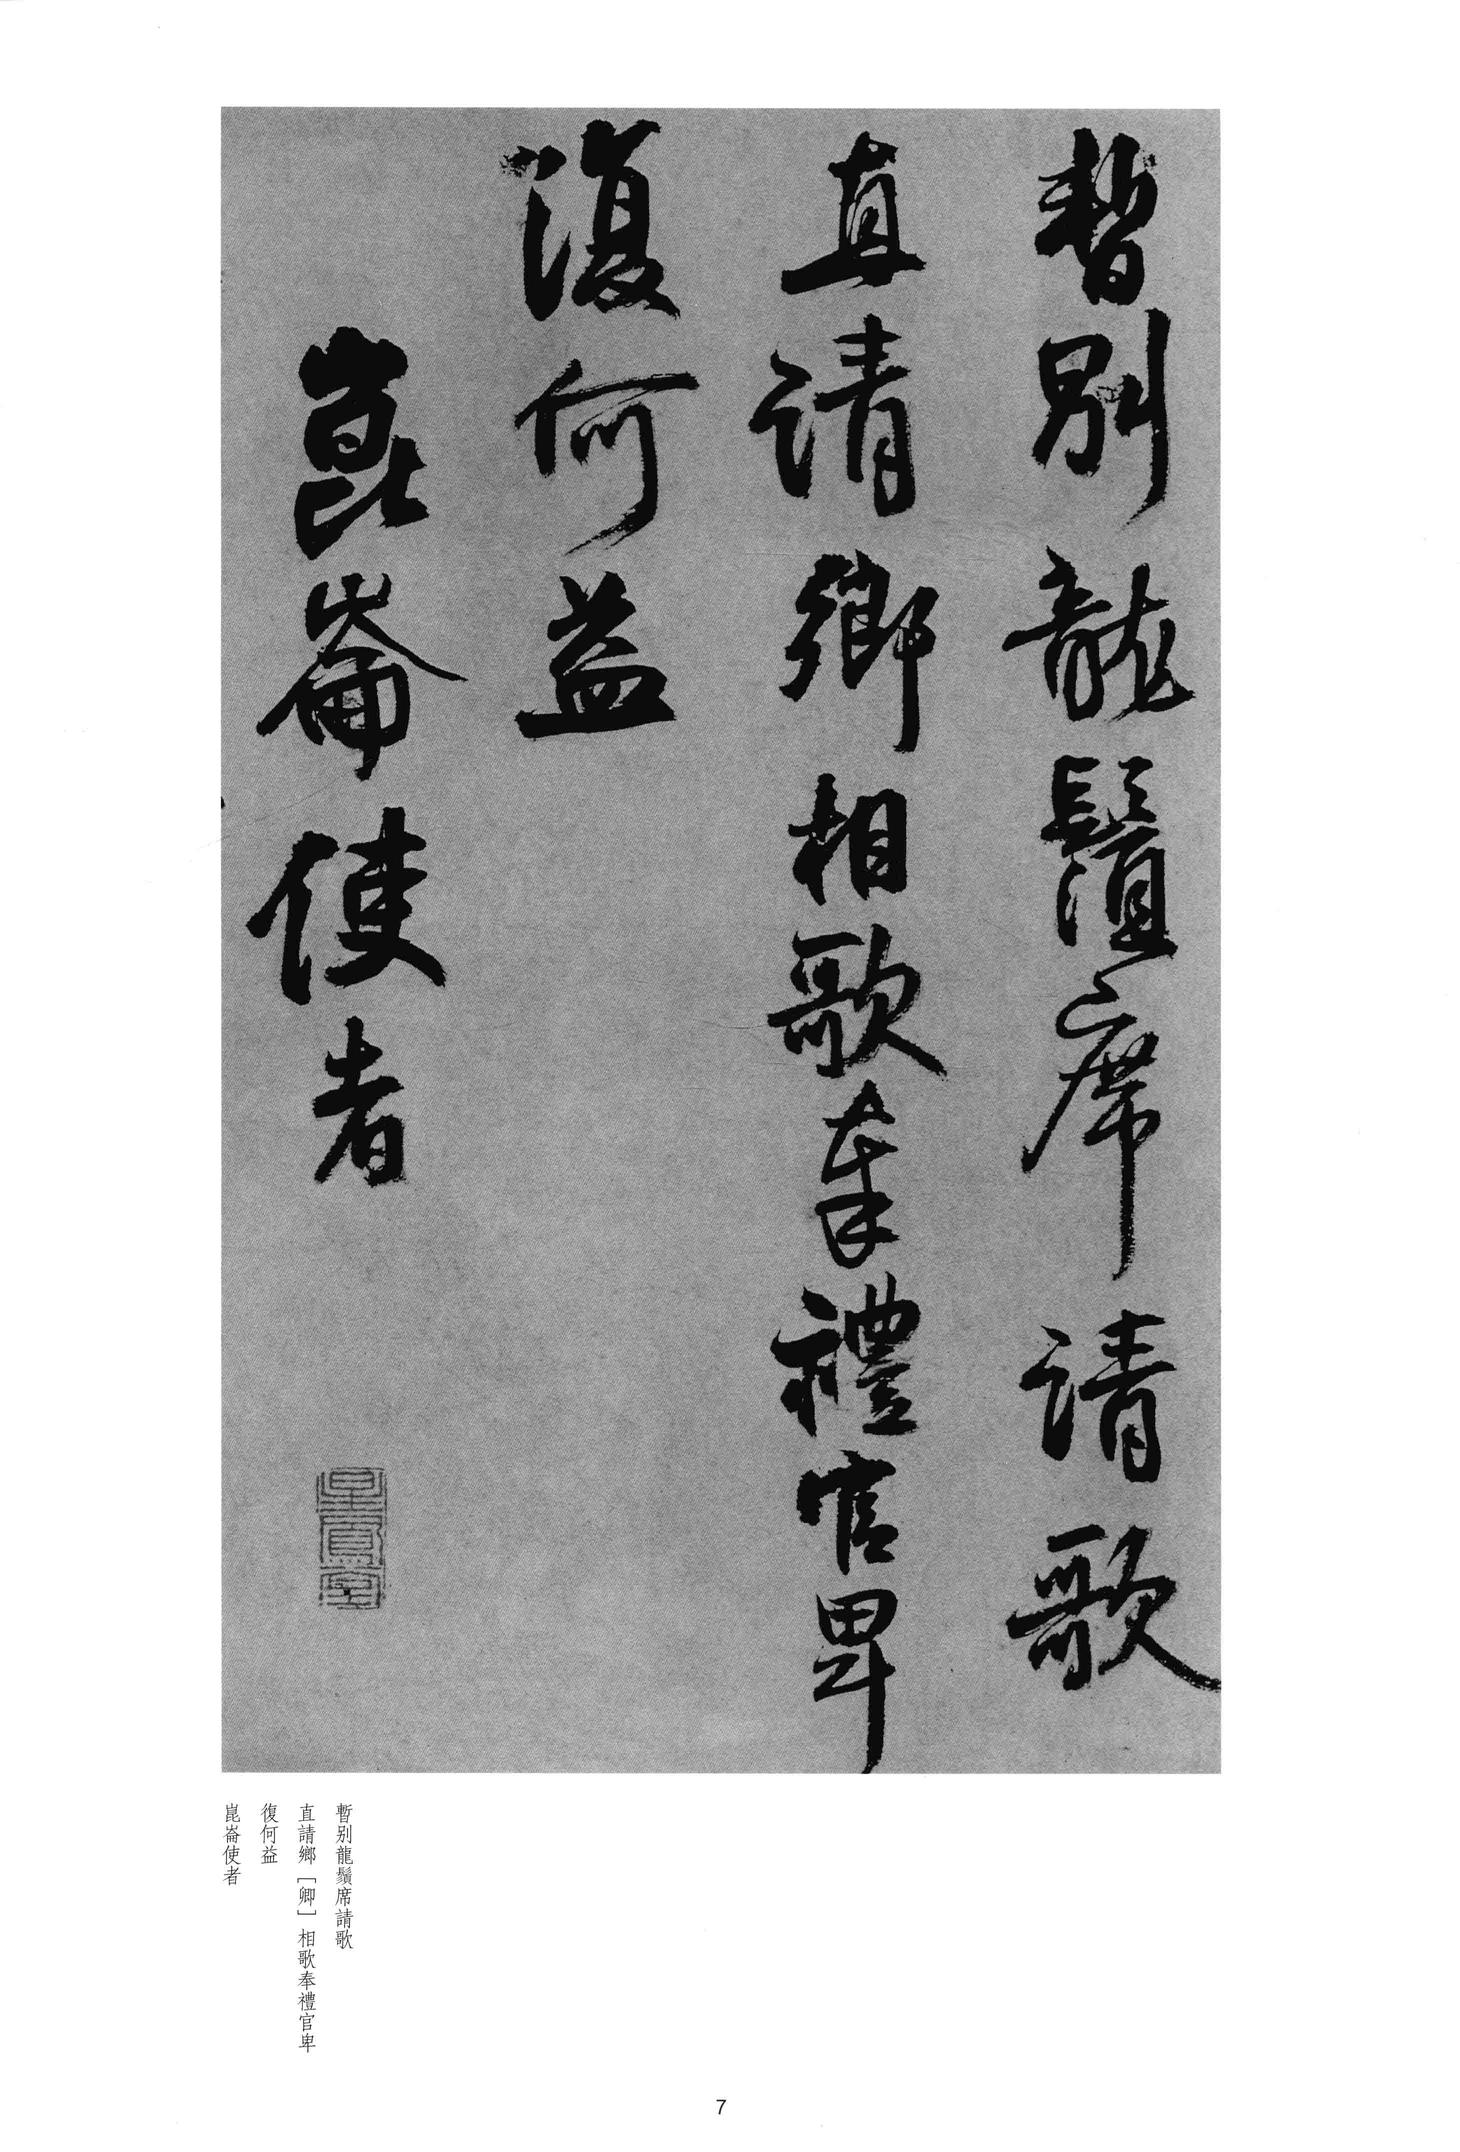 暫別龍鬚席請歌
直請鄉相歌奉禮官卑
復何益
崑崙使者
暫别龍鬚席請歌
直請鄉［卿］相歌奉禮官卑
復何益
崑崙使者
7